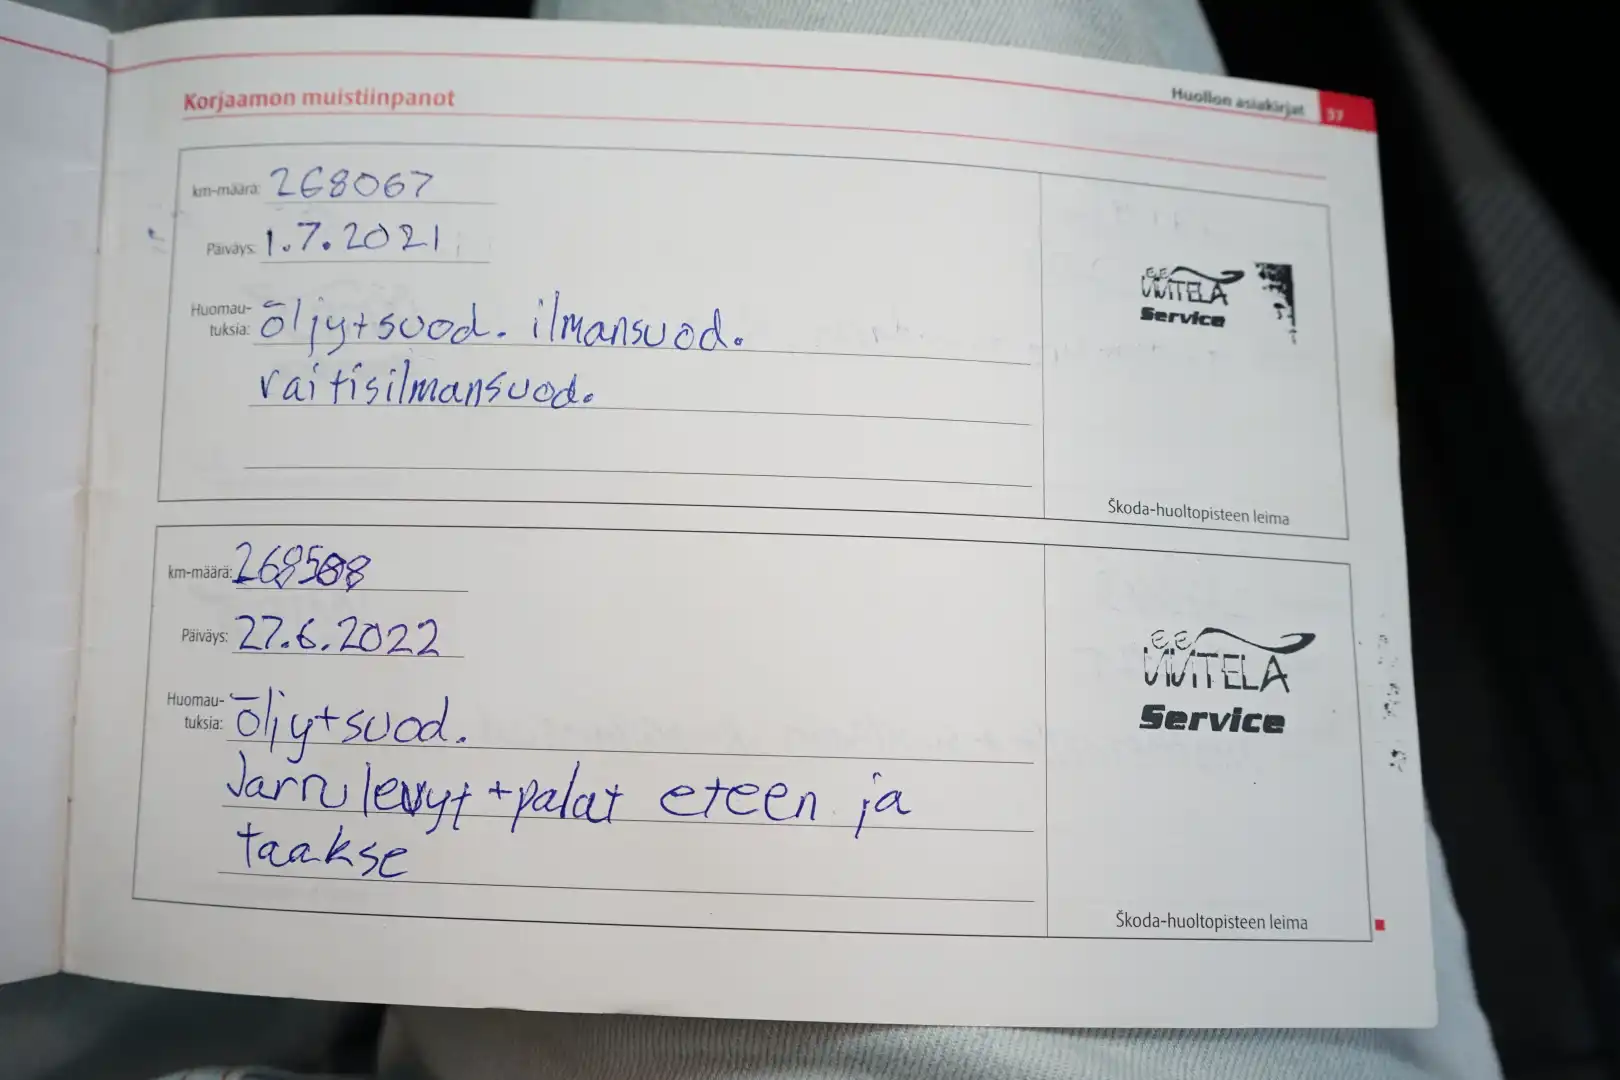 Huollon asiakirjat 37
Korjaamon muistiinpanot
km-määrä: 268067
Päiväys: 1.7.2021
Huomau-
tuksia: öljy+suod. ilmansuod.
raitisilmansuod.
Service
Škoda-huoltopisteen leima
km-määrä:
Päiväys: 27.6.2022
Huomau-
tuksia: öljy+suod.
Jarrulevyt+palat eteen ja
taakse
Service
Škoda-huoltopisteen leima